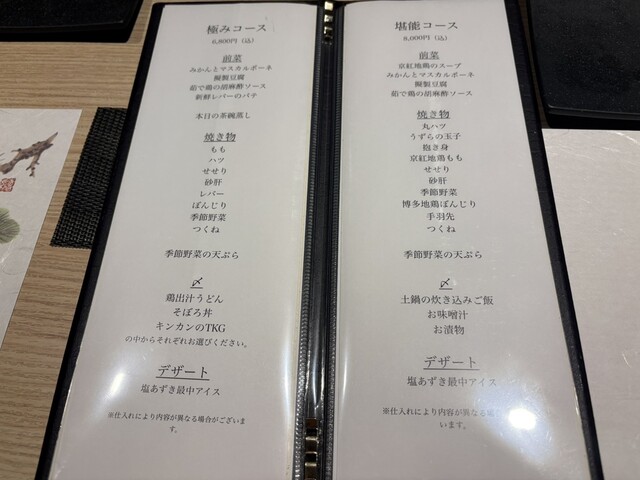 極みコース
6,800円（込）
前菜
みかんとマスカルポーネ
燻製豆腐
茹で鶏の胡麻酢ソース
新鮮レバーのパテ
本日の茶碗蒸し
焼き物
もも
ハツ
せせり
砂肝
レバー
ぼんじり
季節野菜
つくね
季節野菜の天ぷら
〆
鶏出汁うどん
そぼろ丼
キンカンのTKG
の中からそれぞれお選びください。
デザート
塩あずき最中アイス
※仕入れにより内容が異なる場合がございま
す。
堪能コース
8,000円（込）
前菜
京紅地鶏のスープ
みかんとマスカルポーネ
燻製豆腐
茹で鶏の胡麻酢ソース
焼き物
丸ハツ
うずらの玉子
抱き身
京紅地鶏もも
せせり
砂肝
季節野菜
博多地鶏ぼんじり
手羽先
つくね
季節野菜の天ぷら
〆
土鍋の炊き込みご飯
お味噌汁
お漬物
デザート
塩あずき最中アイス
※仕入れにより内容が異なる場
す。